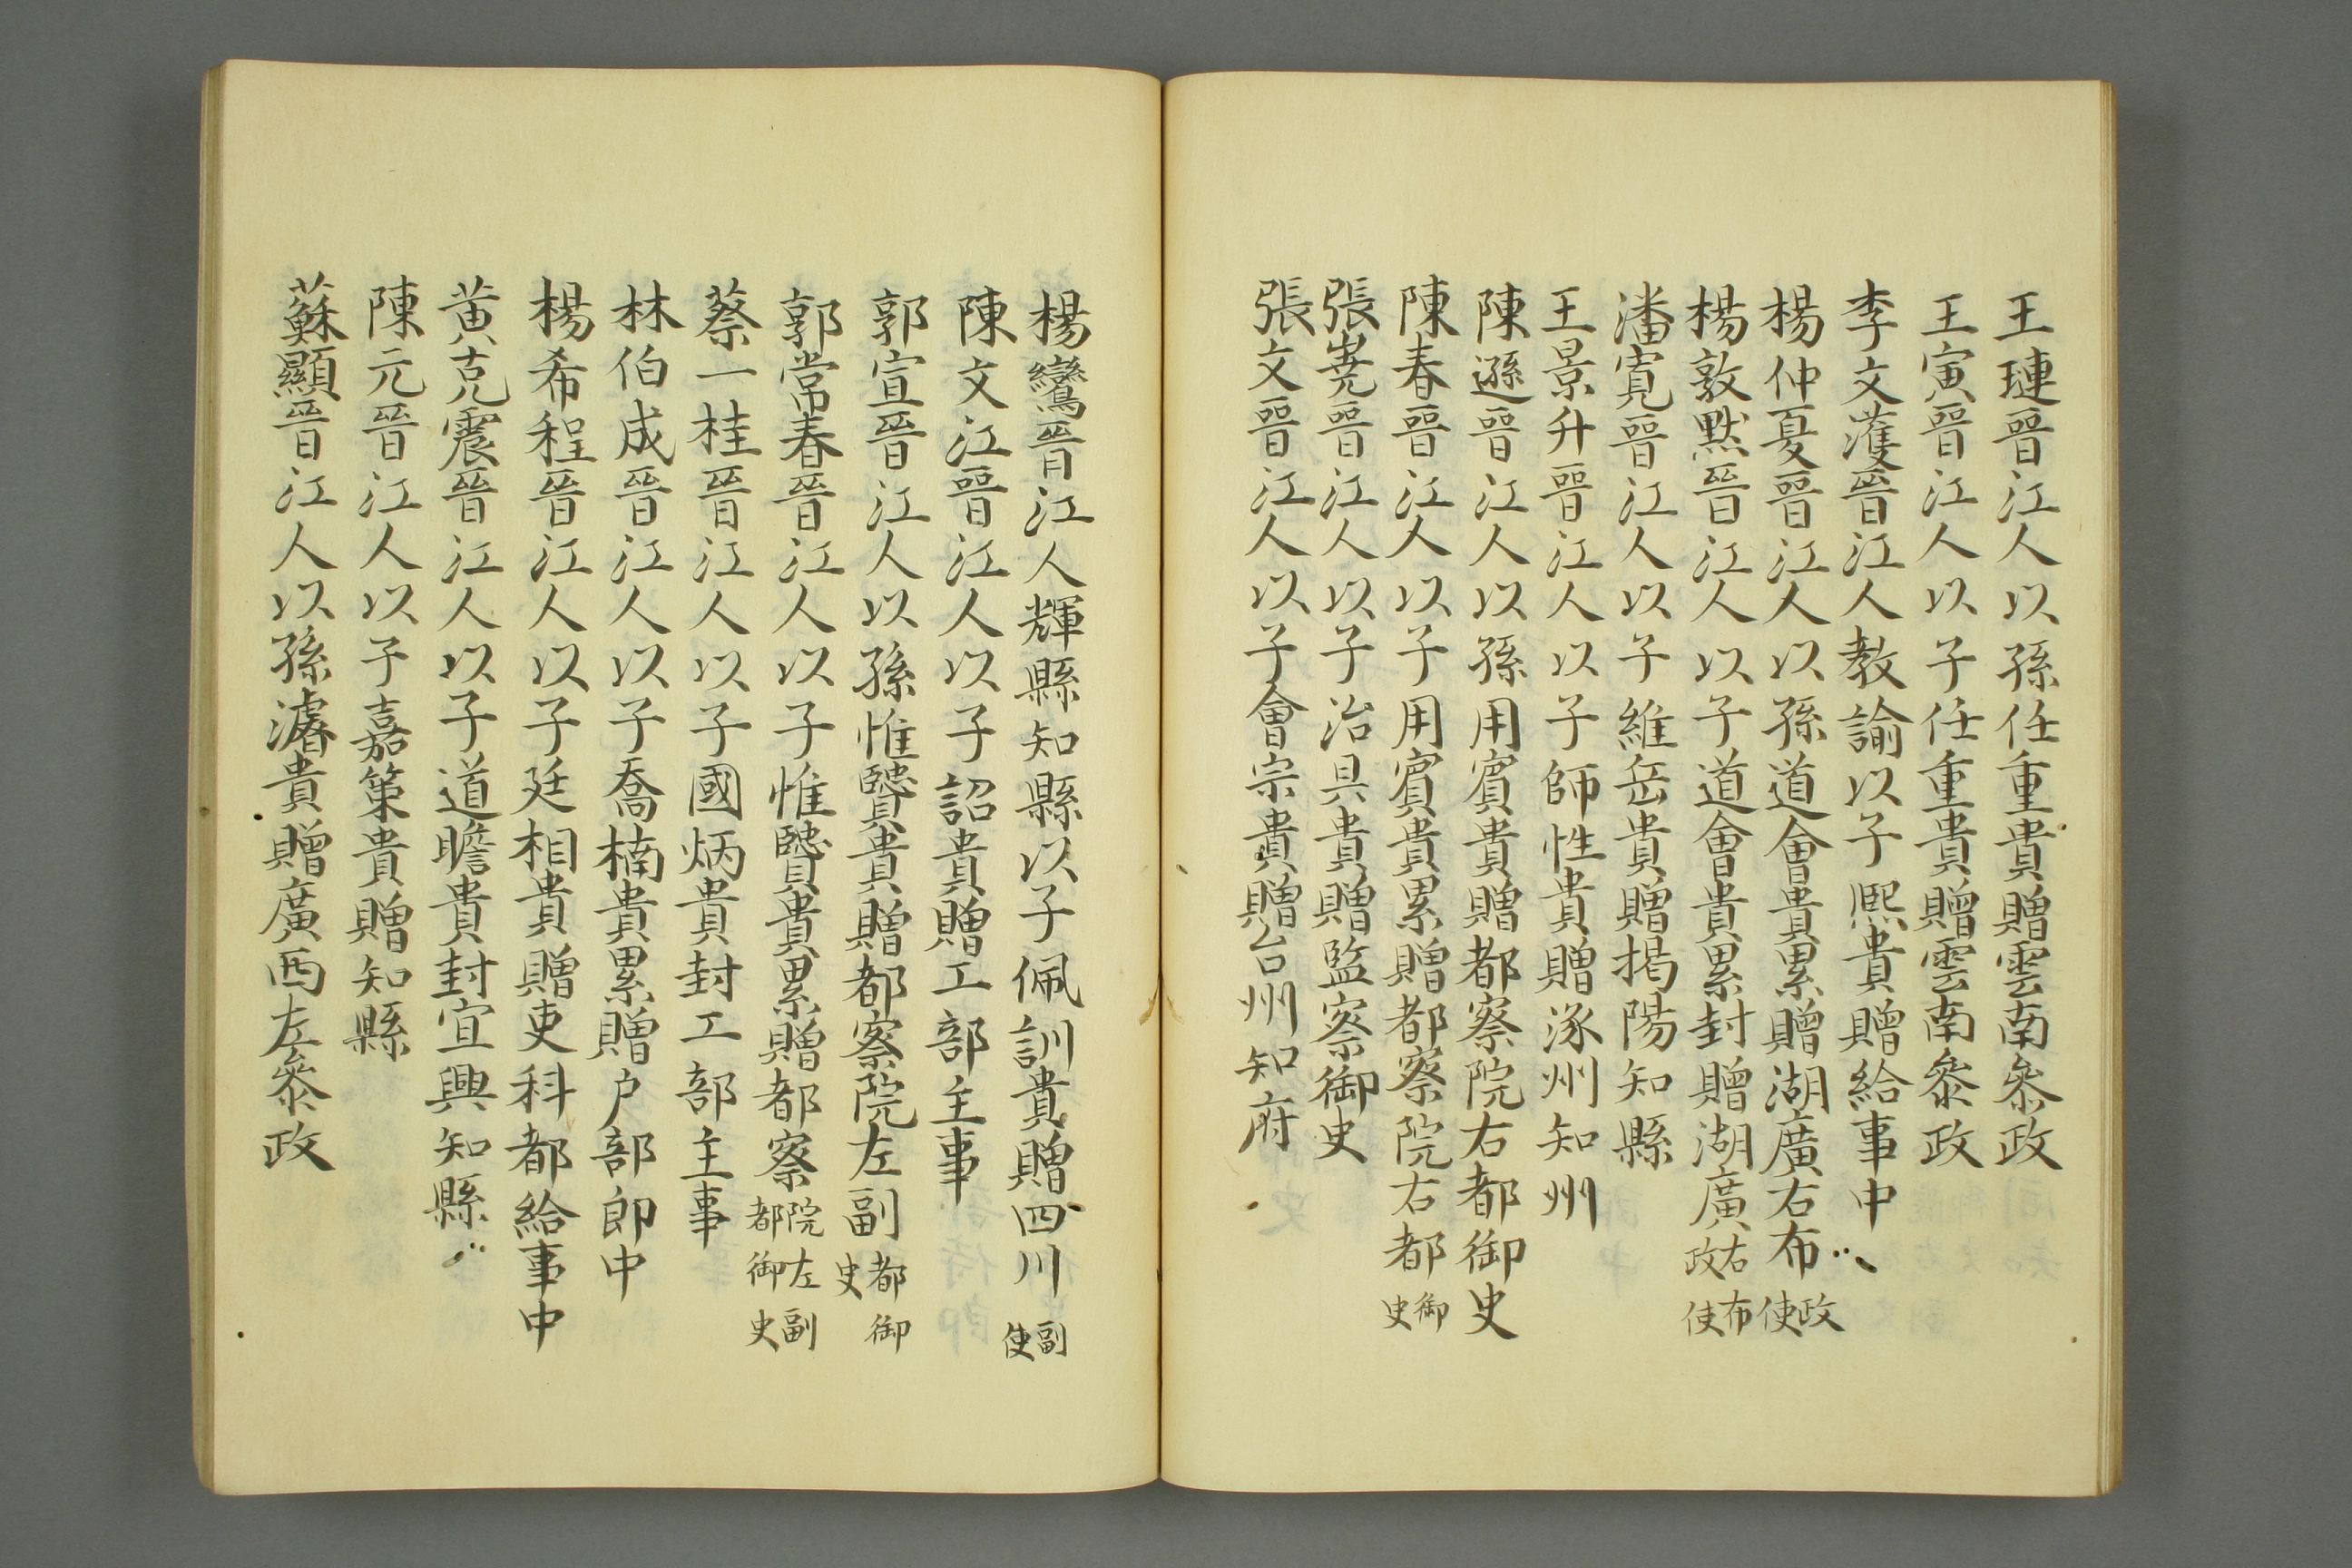 王璉晉江人以孫任重貴贈雲南叅政
王寅晉江人以子任重貴贈雲南叅政
李文濩晉江人教諭以子熙貴贈給事中
楊仲夏晉江人以孫道會貴累贈湖廣右布政使
楊敦黙晉江人以子道會貴累封贈湖廣右布政使
潘寬晉江人以子維岳貴贈揭陽知縣
王景升晉江人以子師性貴贈涿州知州
陳遜晉江人以孫用賓貴贈都察院右都御史
陳春晉江人以子用賓貴累贈都察院右都御史
張嶤晉江人以子治具貴贈監察御史
張文晉江人以子會宗貴贈台州知府
楊鸞晉江人輝縣知縣以子佩訓貴贈四川副使
陳文江晉江人以子詔貴贈工部主事
郭宣晉江人以孫惟賢貴贈都察院左副都御史
郭常春晉江人以子惟賢貴累贈都察院左副都御史
蔡一桂晉江人以子國炳貴封工部主事
林伯成晉江人以子喬楠貴累贈户部郎中
楊希程晉江人以子廷相貴贈吏科都給事中
黄克震晉江人以子道瞻貴封宜興知縣
陳元晉江人以子嘉策貴贈知縣
蘇顯晉江人以孫濬貴贈廣西左叅政